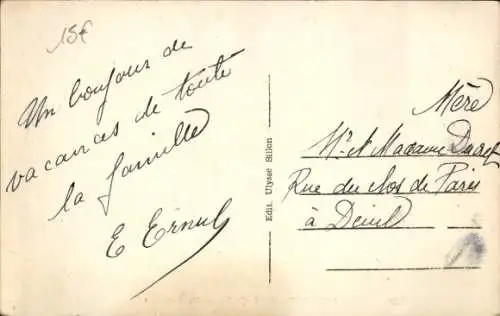 15€
Un bonjour de
vacances de toute
la famille
E Ernul
Edit. Ulysse Sillon
Mère
Mr et Madame
Rue du clos de Paris
à Deuil